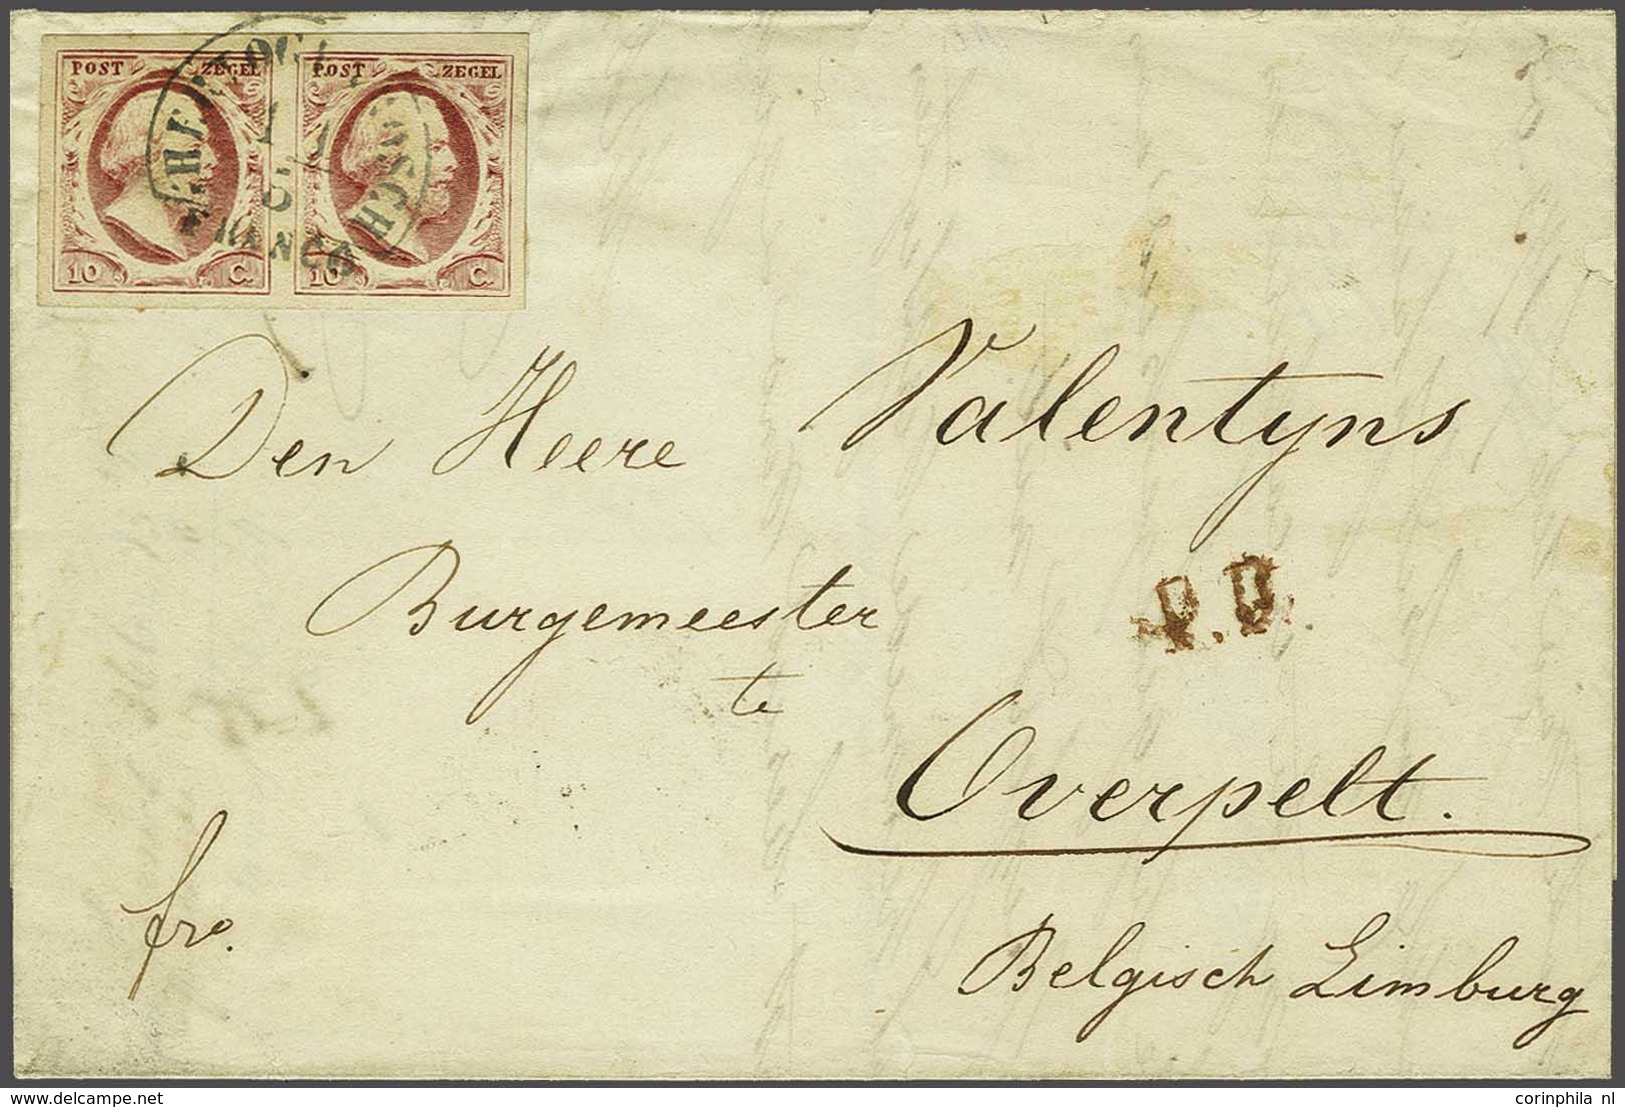 POST ZEGEL POST ZEGEL
10 C. 10 C.
FRANCO
Den Heere Valentyns
Burgemeester
P.D.
te
Overpelt.
fro.
Belgisch Limburg
corinphila nl